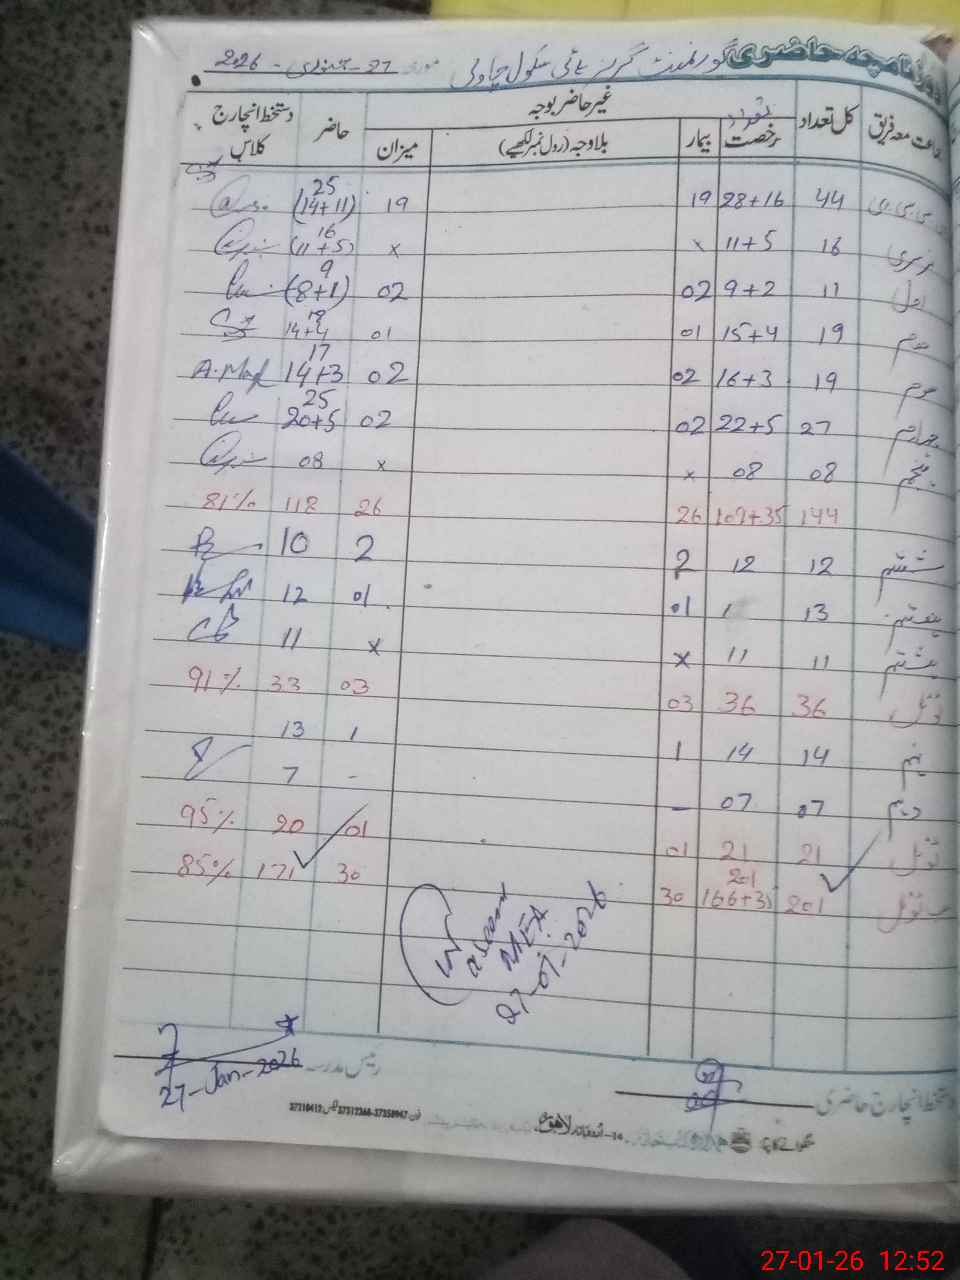 روزنامچہ حاضری گورنمنٹ گرلز ہائی سکول چاولی مورخہ 27 - جنوری - 2026
جماعت معہ فریق کل تعداد تعداد رخصت بیمار غیر حاضر بوجہ بلاوجہ (رول نمبر لکھیے) میزان حاضر دستخط انچارج کلاس
44 28+16 19 19 25 (14+11)
نرسری 16 11+5 x x 16 (11+5)
اول 11 9+2 02 02 9 (8+1)
دوم 19 15+4 01 01 18 14+4
سوم 19 16+3 02 02 17 14+3
چہارم 27 22+5 02 02 25 20+5
پنجم 08 08 x x 08
144 109+35 26 26 118 81%
ششم 12 12 2 2 10
ہفتم 13 01 01 12
ہشتم 11 11 x x 11
ٹوٹل 36 36 03 03 33 91%
نہم 14 14 1 1 13
دہم 07 07 - - 7
ٹوٹل 21 21 01 01 20 95%
ٹوٹل 201 201 166+35 30 30 171 85%
MEA
27-01-2026
دستخط انچارج حاضری
رئیس مدرسہ
27-Jan-2026
لاہور
فون: 37358947-37312368 فیکس: 37310412
27-01-26 12:52